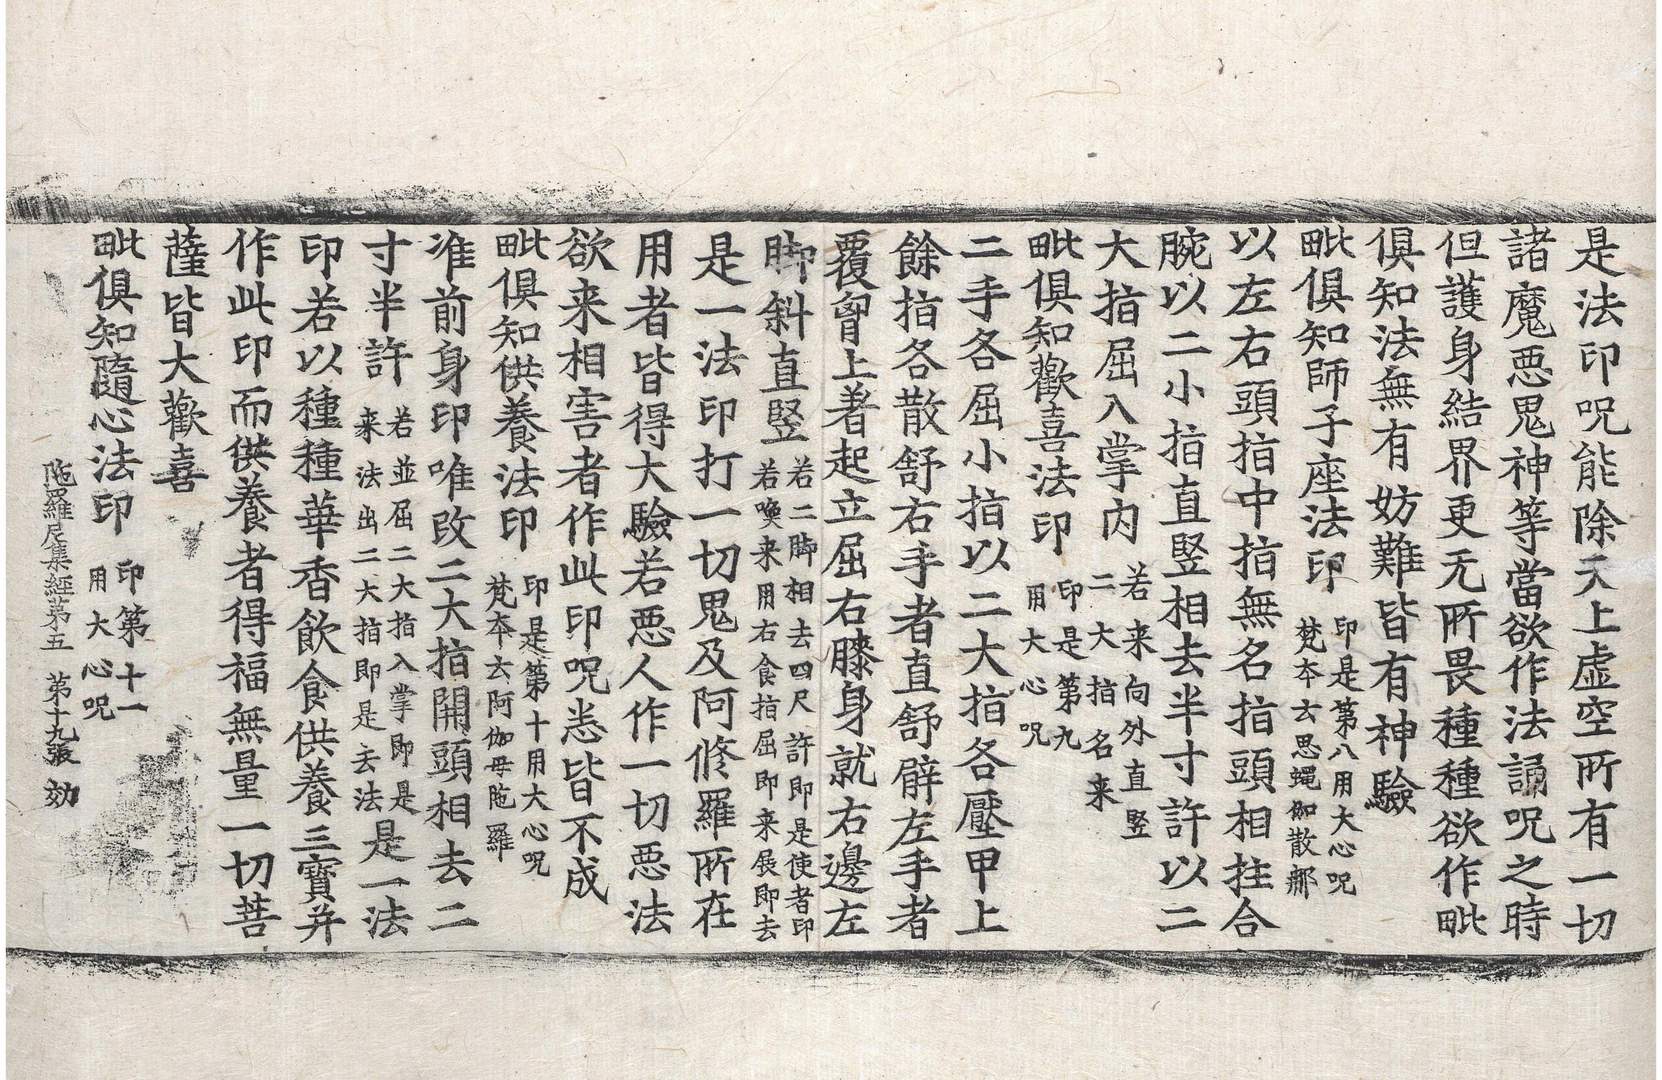 是法印呪能除天上虛空所有一切
諸魔惡鬼神等當欲作法誦呪之時
但護身結界更无所畏種種欲作毗
俱知法無有妨難皆有神驗
毗俱知師子座法印 印是第八用大心呪
梵夲云思蝇伽散那
以左右頭指中指無名指頭相拄合
腕以二小指直竪相去半寸許以二
大指屈入掌內 若来向外直竪
二大指名来
毗俱知歡喜法印 印是第九
用大心呪
二手各屈小指以二大指各壓甲上
餘指各散舒右手者直舒臂左手者
覆胷上著起立屈右膝身就右邊左
脚斜直竪 若二脚相去四尺許即是使者印
若喚来用右食指屈即来展即去
是一法印打一切鬼及阿修羅所在
用者皆得大驗若惡人作一切惡法
欲来相害者作此印呪恙皆不成
毗俱知供養法印 印是第十用大心呪
梵夲云阿伽母陁羅
准前身印唯改二大指開頭相去二
寸半許 若並屈二大指入掌即是
来法出二大指即是去法 是一法
印若以種種華香飮食供養三寶并
作此印而供養者得福無量一切菩
薩皆大歡喜
毗俱知隨心法印 印第十一
用大心呪
陁羅尼集經第五 第十九張 効